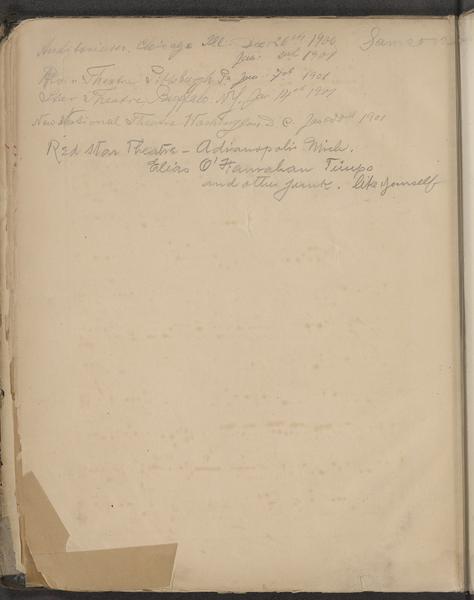 Auditorium, Chicago Ill. Dec 26th 1900
Jan. 2nd 1901
Theatre Pittsburgh Pa Jan. 7th 1901
Star Theatre, Buffalo. N.Y. Jan 14th 1901
New National Theatre Washington D. C. Jan 1901
Red Star Theatre - Adrianopolis Mich.
Elias O'Hanrahan Timpo
and other jaunts. like yourself